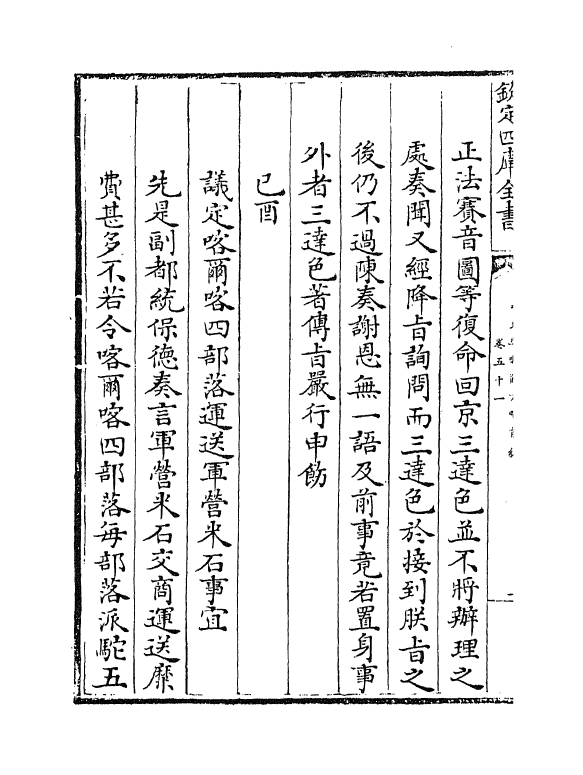 欽定四庫全書
卷五十一
二
正法賽音圖等復命回京三達色並不將辦理之
處奏聞又經降㫖詢問而三達色於接到朕㫖之
後仍不過陳奏謝恩無一語及前事竟若置身事
外者三達色著傳㫖嚴行申飭
己酉
議定喀爾喀四部落運送軍營米石事宜
先是副都統保徳奏言軍營米石交商運送糜
費甚多不若令喀爾喀四部落每部落派駝五